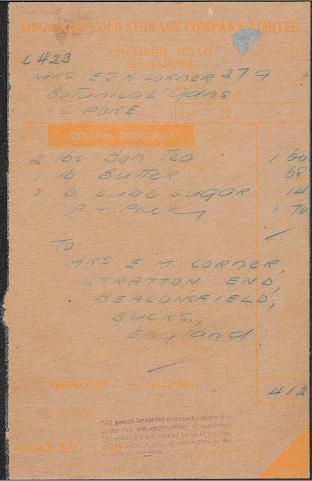 SINGAPORE COLD STORAGE COMPANY LIMITED
ORCHARD ROAD
SINGAPORE
L423
MRS E J H CORNER 379
Botanical Gdns
S'PORE
GENERAL GROCERIES
2 lbs Bon Tea 1 60
1 lb Butter 68
1 lb cube sugar 14
P + Pack 1 70
TO
MRS E M CORNER,
STRATTON END,
BEACONSFIELD,
BUCKS,
England
412
All parcels forwarded overseas by
at the risk and responsibility of